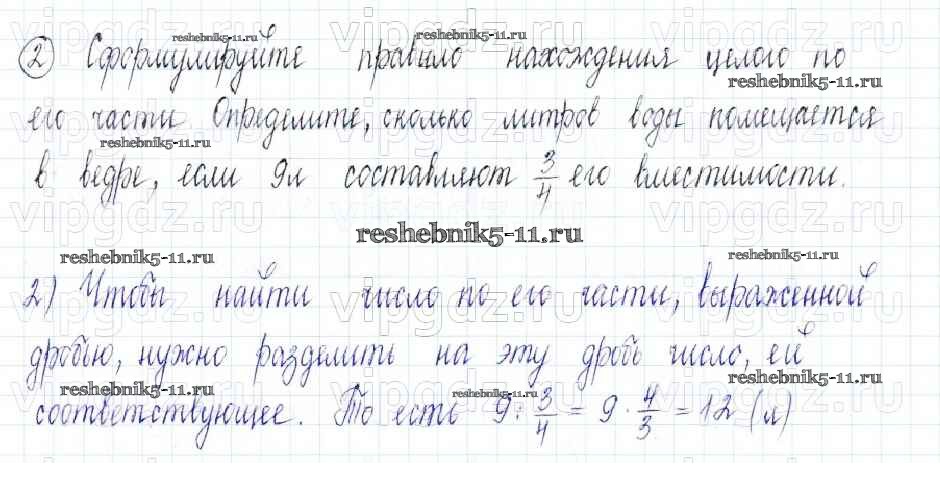 ② Сформулируйте правило нахождения целого по
его части. Определите, сколько литров воды помещается
в ведре, если 9л составляют 3/4 его вместимости.
2) Чтобы найти число по его части, выраженной
дробью, нужно разделить на эту дробь число, ей
соответствующее. То есть 9 : 3/4 = 9 · 4/3 = 12 (л)
vipgdz.ru
reshebnik5-11.ru
reshebnik5-11.ru
reshebnik5-11.ru
reshebnik5-11.ru
reshebnik5-11.ru
reshebnik5-11.ru
reshebnik5-11.ru
reshebnik5-11.ru
reshebnik5-11.ru